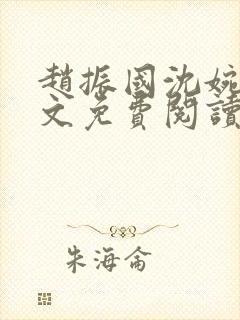 趙振國沈婉
文免費閱讀
朱海侖